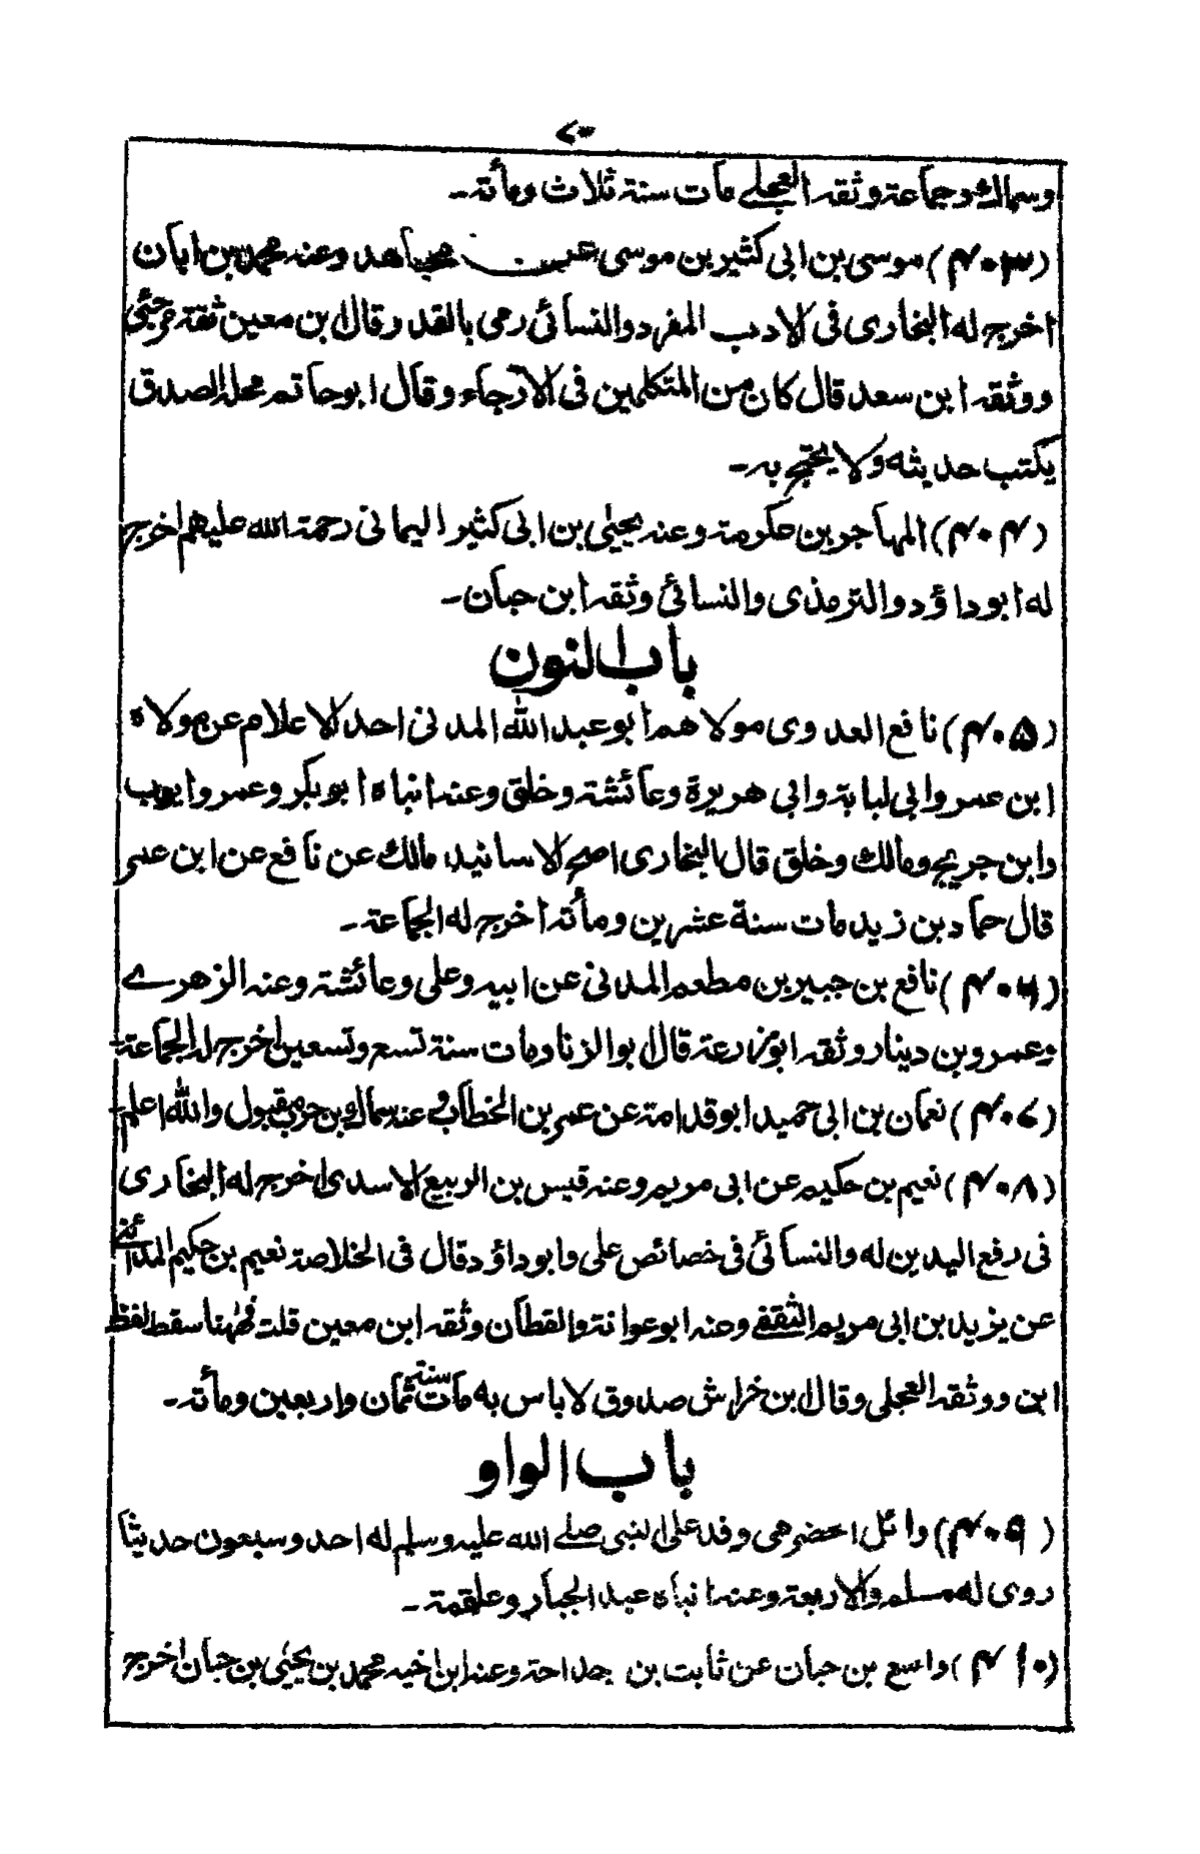 ۷۰
وسماك وجماعة وثقه العجلے مات سنة ثلاث ومأته۔
(۴۰۳) موسى بن ابي كثير بن موسى عن مجاهد وعنه محمد بن ابان
اخرجه له البخارى فى الادب المفرد والنسائى رمى بالقدر وقال ابن معين ثقة مرجئى
ووثقه ابن سعد قال كان من المتكلمين فى الارجاء وقال ابو حاتم محله الصدق
يكتب حديثه ولا يحتج به۔
(۴۰۴) المهاجر بن عكرمة وعنه يحيىٰ بن ابى كثير اليمانى رحمة الله عليهم اخرجه
له ابو داؤد والترمذى والنسائى وثقه ابن حبان۔
باب النون
(۴۰۵) نافع العدوى مولاهم ابو عبد الله المدنى احد الاعلام عن مولاه
ابن عمر وابى لبابة وابى هريرة وعائشة وخلق وعنه ابناه ابو بكر وعمر وايوب
وابن جريج ومالك وخلق قال البخارى اصح الاسانيد مالك عن نافع عن ابن عمر
قال حماد بن زيد مات سنة عشرين ومأته اخرجه له الجماعة۔
(۴۰۶) نافع بن جبير بن مطعم المدنى عن ابيه وعلى وعائشة وعنه الزهرے
وعمرو بن دينار وثقه ابو زرعة قال ابو الزناد مات سنة تسع وتسعين اخرجه له الجماعة۔
(۴۰۷) نعمان بن ابى حميد ابو قدامة عن عمر بن الخطاب وعنه سماك بن حرب مقبول والله اعلم۔
(۴۰۸) نعيم بن حكيم عن ابى مريم وعنه قيس بن الربيع الاسدى اخرجه له البخارى
فى رفع اليدين له والنسائى فى خصائص على وابو داؤد قال فى الخلاصة نعيم بن حكيم المدائنے
عن يزيد بن ابى مريم الثقفے وعنه ابو عوانة والقطان وثقه ابن معين قلت فهٰهنا سقط لفظ
ابن ووثقه العجلى وقال ابن خراش صدوق لا باس به مات سنة ثمان واربعين ومأته۔
باب الواو
(۴۰۹) وائل الحضرمى وفد على النبى صلے الله عليه وسلم له احد وسبعون حديثا
روى له مسلم والاربعة وعنه ابناه عبد الجبار وعلقمة۔
(۴۱۰) واسع بن حبان عن ثابت بن حداحة وعنه ابن اخيه محمد بن يحيىٰ بن حبان اخرجه